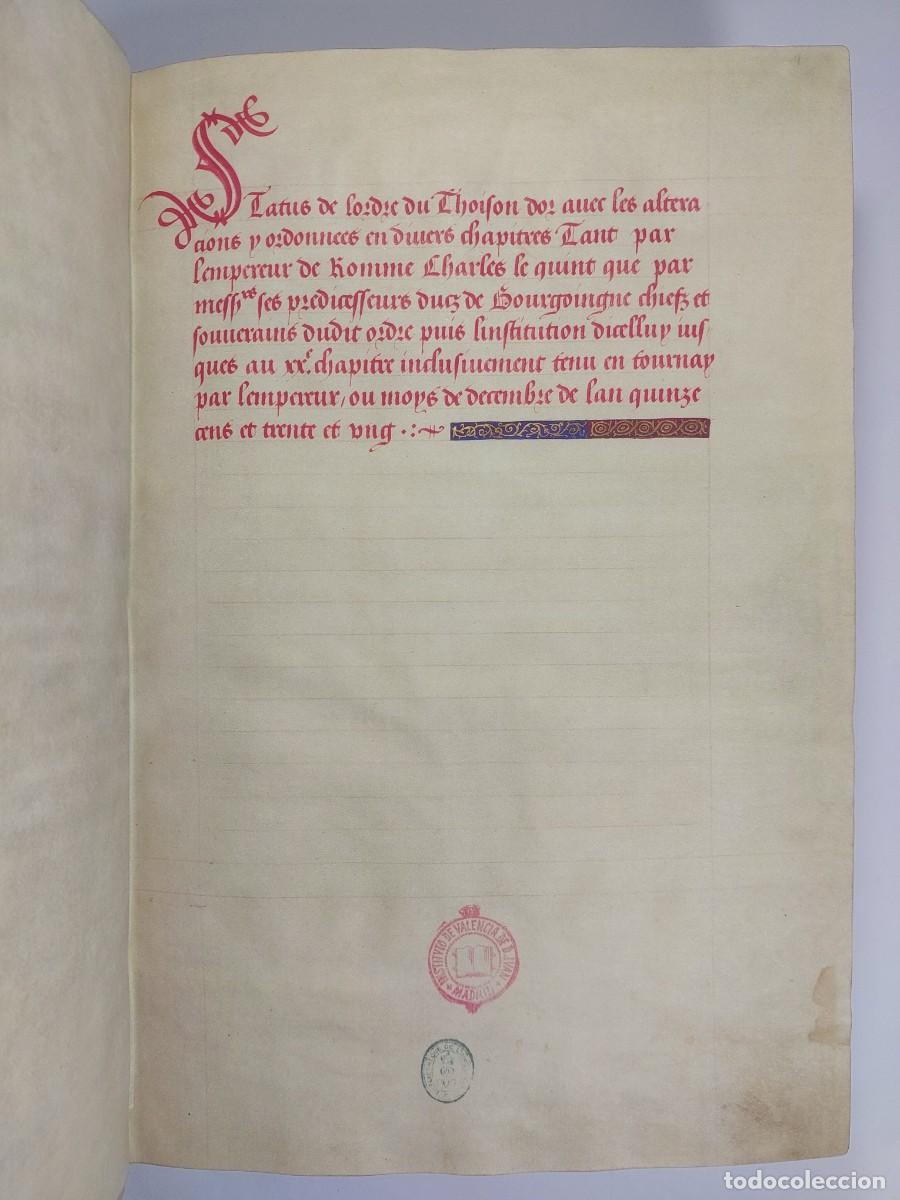 STatus de lordre du Thoison dor auec les altera
cions y ordonnees en diuers chapitres Tant par
lempereur de Romme Charles le quint que par
messrs ses predicesseurs ducz de Bourgoingne chiefz et
souuerains dudit ordre puis linstitution dicelluy ius
ques au xxe. chapitre inclusiuement tenu en tournay
par lempereur, ou moys de decembre de lan quinze
cens et trente et vng .:~
INSTITVTO DE VALENCIA DE D. JVAN
* MADRID *
todocoleccion